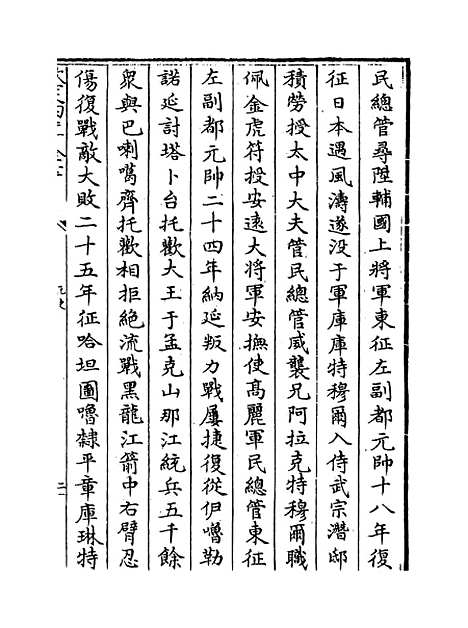 民總管尋陞輔國上將軍東征左副都元帥十八年復
征日本遇風濤遂没于軍庫庫特穆爾入侍武宗潛邸
積勞授太中大夫管民總管威襲兄阿拉克特穆爾職
佩金虎符授安遠大將軍安撫使高麗軍民總管東征
左副都元帥二十四年納延叛力戰屢捷復從伊嚕勒
諾延討塔卜台托歡大王于孟克山那江統兵五千餘
衆與巴喇噶齊托歡相拒絶流戰黑龍江箭中右臂忍
傷復戰敵大敗二十五年征哈坦圖嚕隸平章庫琳特